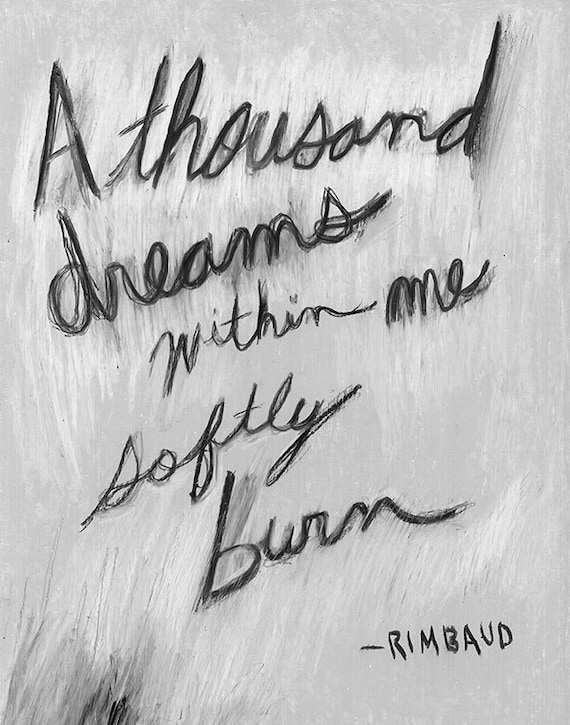 A thousand
dreams
within me
softly
burn
–RIMBAUD